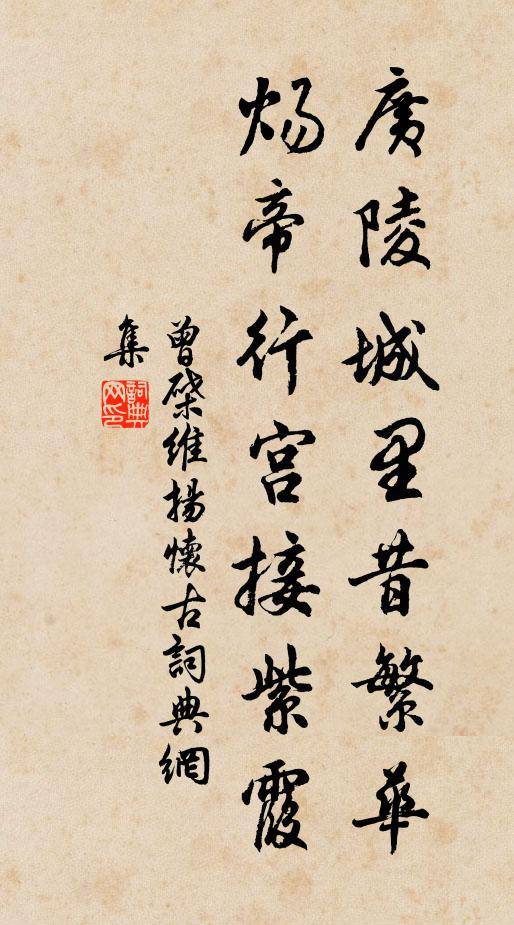 廣陵城里昔繁華
煬帝行宮接紫霞
曾棨維揚懷古詞典網
集
詞典
网印